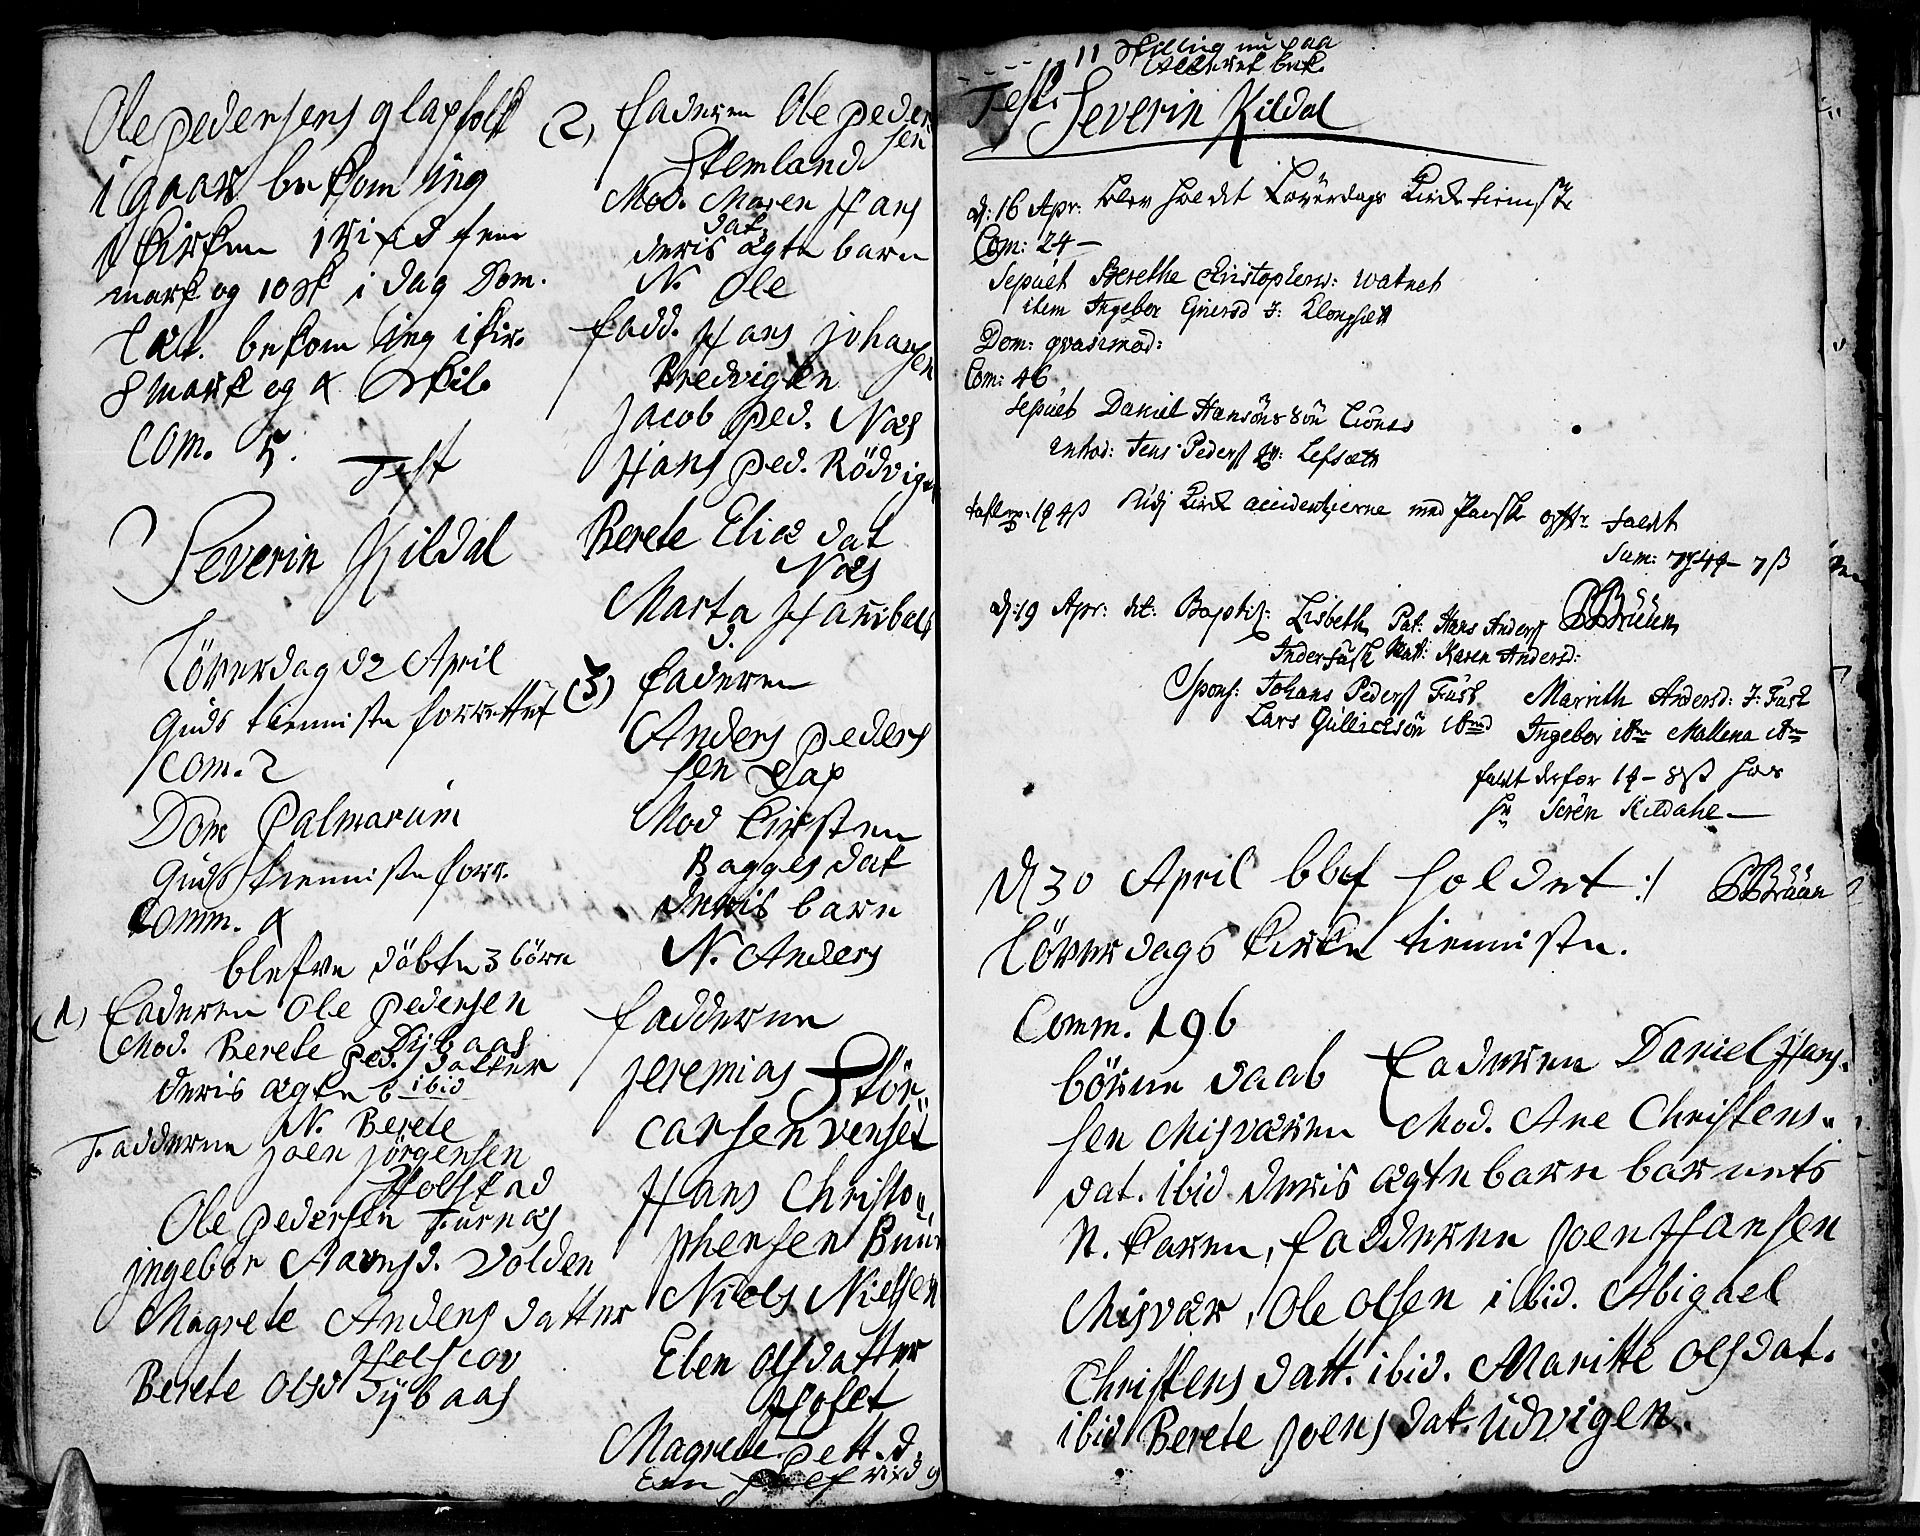 Ole pedersens glapfolk
i gaar bekom ing
i kirken 1 rixd fem
mark og 10 sk i dag Dom.
Læt. bekom ing i kir.
8 mark og 4 skil.
com. 5.
Test
Severin Kildal
Löverdag d 2 April
Guds tienniste forrettet
com. 2
Dom Palmarum
Guds tienniste forr.
Comm. 4
blefve döbte 3 börn
(1) faderen Ole Pedersen
Dybaas
Mod. Berete Ped. datter
ibid
deris ægte b
N. Berete
Fadderne Joen Jörgensen
Holstad
Ole Pedersen Furnæs
jngebor Aarnsd. Volden
Magrete Anders datter
Holscov
Berete Olsd Dybaas
(2) faderen Ole peder
sen
Stemland
Mod. Maren Hans
dat.
deris ægte barn
N. Ole
fadd. Hans johan
sen
Bredvigen
Jacob Ped. Næs
Hans Ped. Rödvig
Berete Eliæ dat
Næs
Marta Hanibals
d.
(3) faderen
Anders peders
sen Lap
Mod Kirsten
Bagges dat
deris barn
N. Anders
fadderne
jeremias Stör
carsen venset
Hans Christo„
phersen Buur
Niels Nielsen
Elen Olsdatter
Hofset
Magrete pett. d.
11 skilling nu paa
Test. Severin Kildal
d: 16 Apr: blev holdt Löverdags Kirketieniste
Com: 24 —
Sepult Berethe Christophersd: Watnet
item Ingebor Ejnersd I: Klongset
Dom: quasimod:
Com: 46
Sepult Daniel Hansöns sön
introd: Jens Peders Qv: Lefsæth
Sum:
d: 19 Apr: dt: Baptis: Lisbeth, Pat: Hans Anders BBruun
Inderfusk Mat: Karen Andersd:
Spons: Johans Peders Fusk Marrith Andersd: I: Fusk
Lars Gullichsön item Ingebor item Mallena item
faldt derfor 1 - 8 ß hos
Hr Sören Kildahl —
d 30 April blef holdet :/ BBruun
Löverdags kirke tienniste.
Comm. 196
börne daab faderen Daniel Hans„
sen Misværen Mod. Ane Christens„
dat. ibid deris ægte barn barnets
N. Karen, fadderne Joen Hansen
Misvær, Ole Olsen ibid. Abigael
Christens datt. ibid. Maritte Olsdat.
ibid Berete Joens dat. Udvigen.